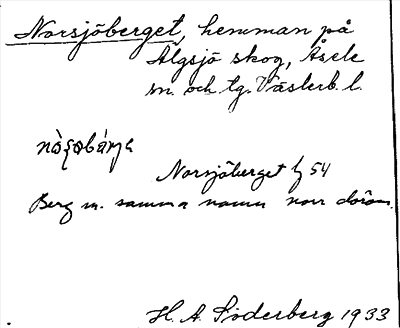 Norsjöberget, hemman på
Älgsjö skog, Åsele
sn. och tg. Västerb. l.
Norsjöberget 54
Berg m. samma namn norr därom.
H. A. Söderberg 1933